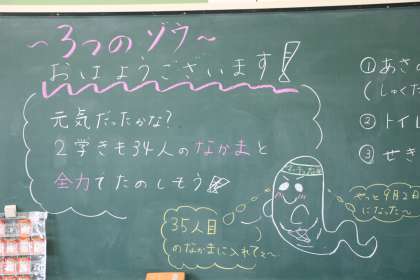 ~3つのゾウ~
おはようございます!
元気だったかな?
2学きも34人のなかまと
全力でたのしもう!
35人目
のなかまに入れてぇ~
やっと9月2日
になった~
①あさの
(しゅくだ
②トイレ
③せき